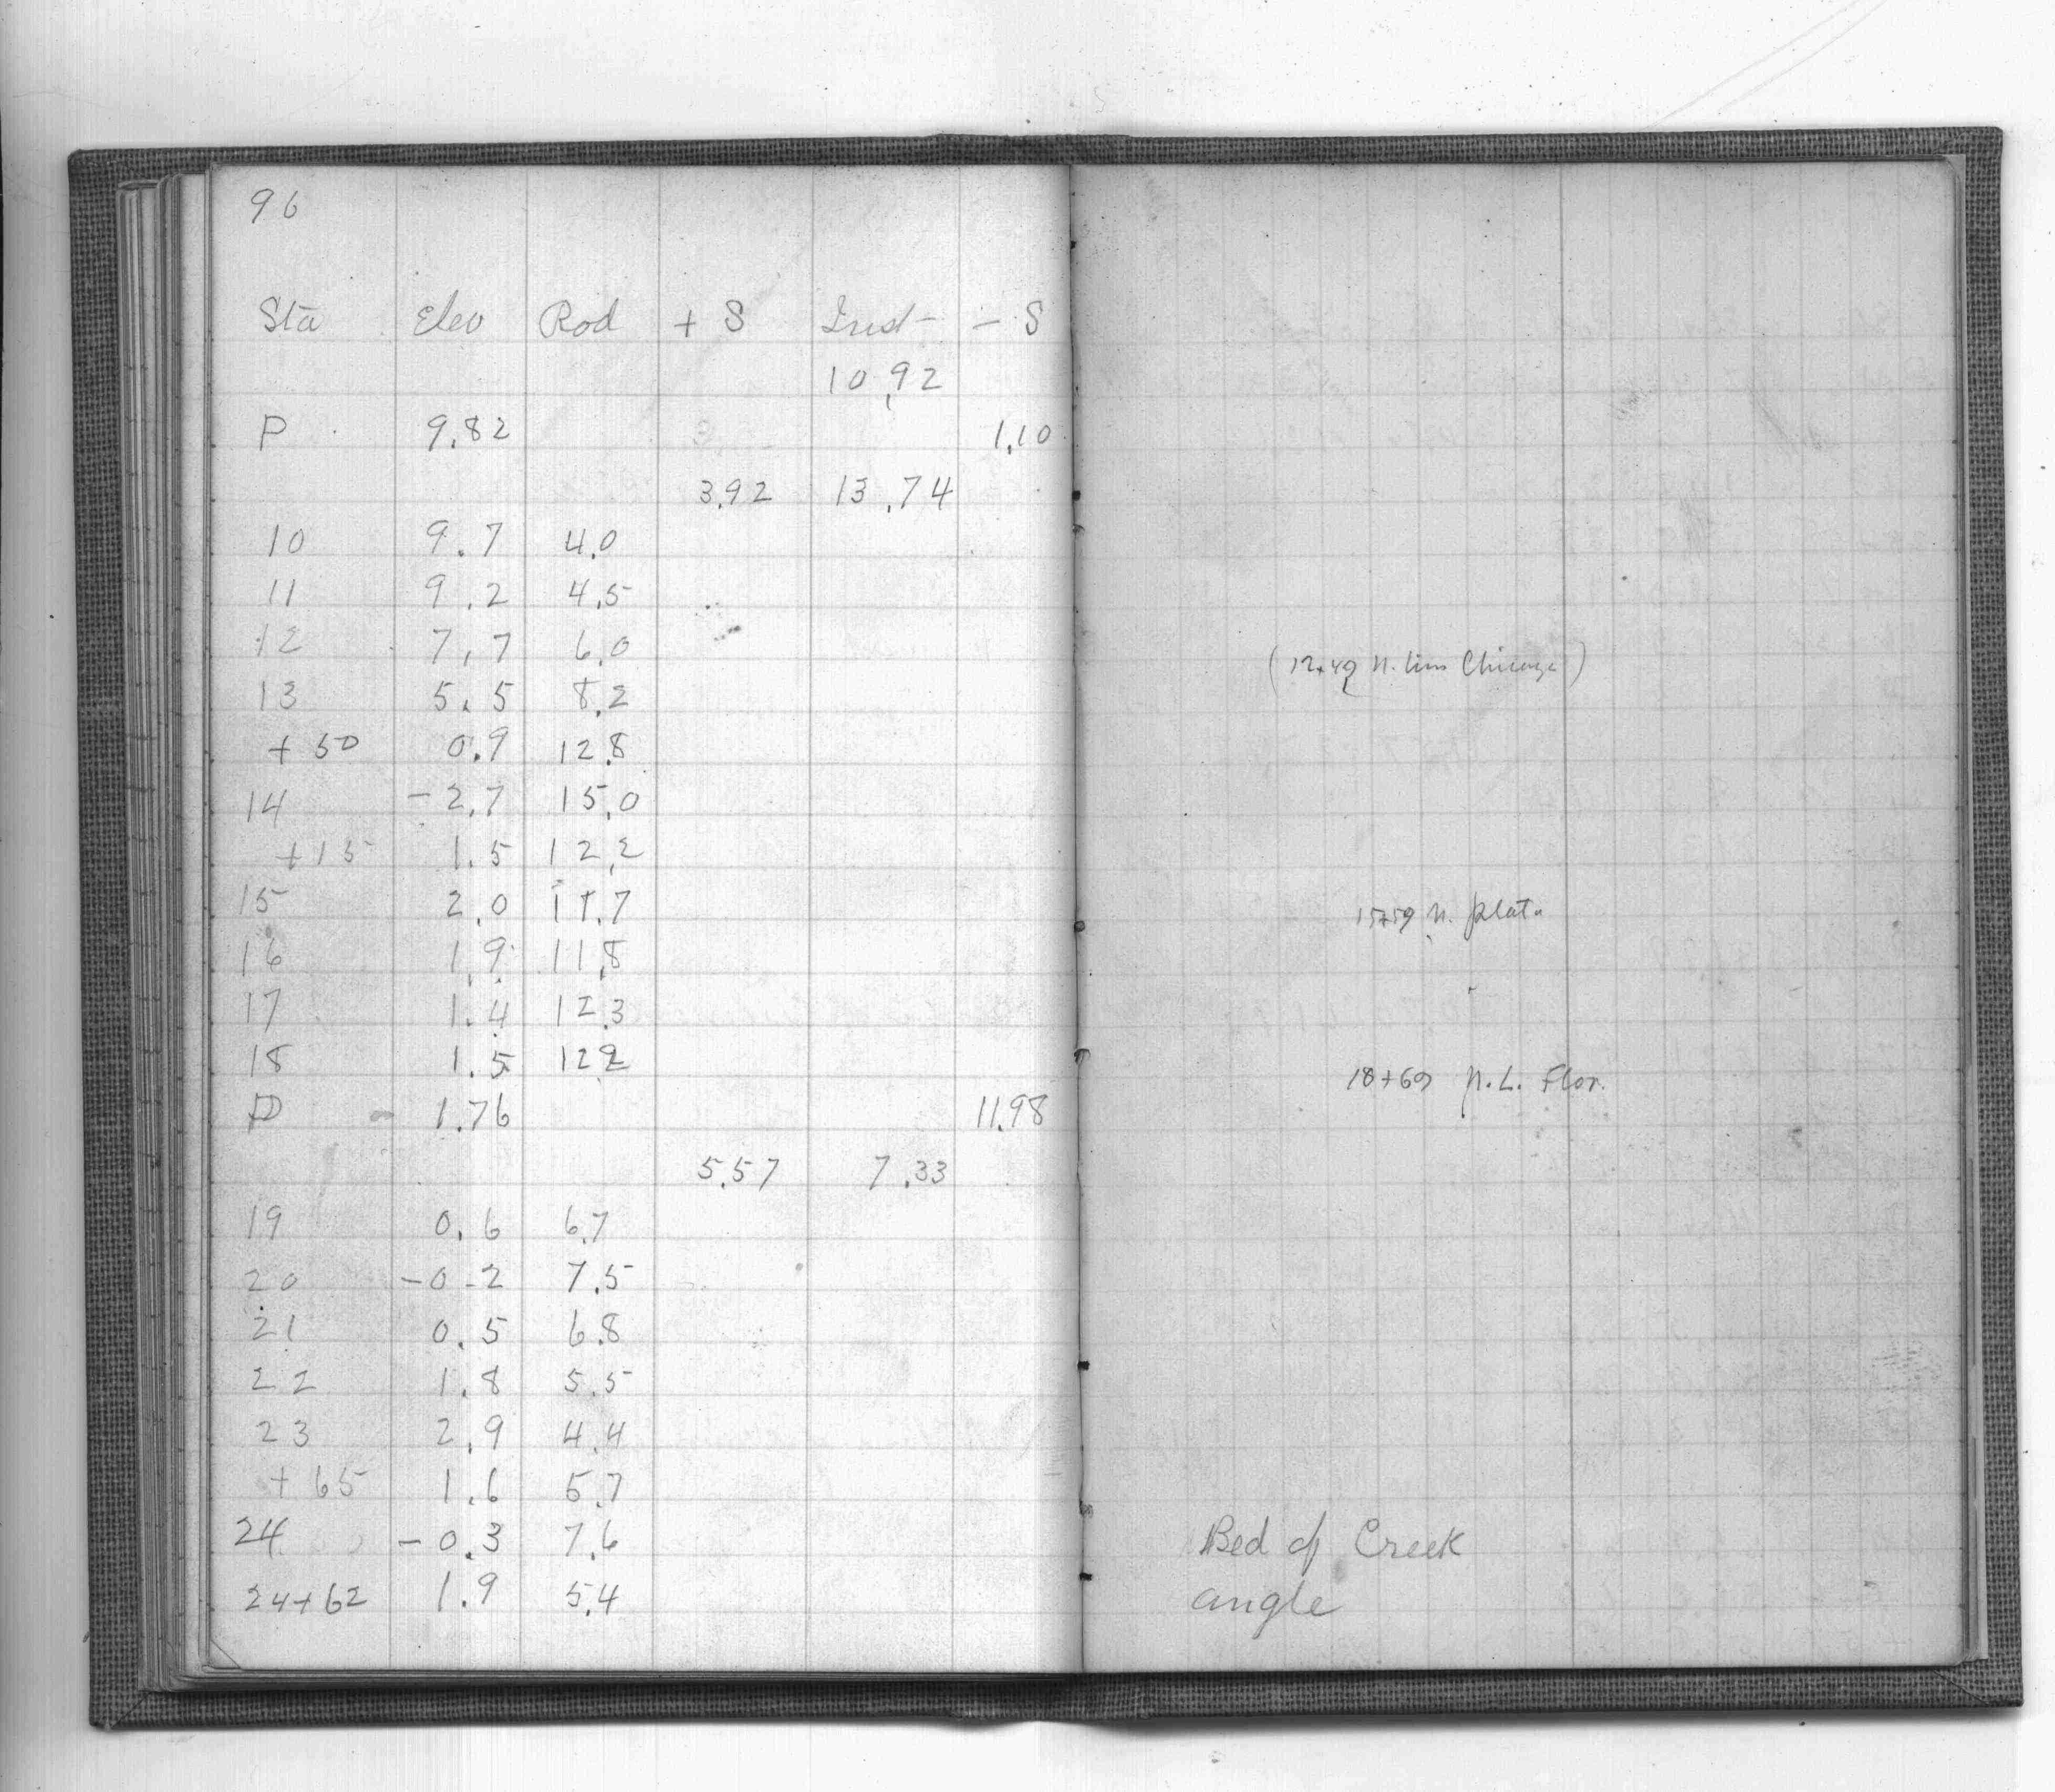 96
Sta Elev Rod + S Inst - S
10.92
P 9.82 1.10
3.92 13.74
10 9.7 4.0
11 9.2 4.5
12 7.7 6.0
(12+49 N. line Chicago)
13 5.5 8.2
+ 50 0.9 12.8
14 -2.7 15.0
+15 1.5 12.2
15 2.0 11.7
15+59 N. Plata
16 1.9 11.8
17 1.4 12.3
18 1.5 12.2
18+69 N.L. Flor.
P 1.76 11.98
5.57 7.33
19 0.6 6.7
20 -0.2 7.5
21 0.5 6.8
22 1.8 5.5
23 2.9 4.4
+ 65 1.6 5.7
24 -0.3 7.6 Bed of Creek
24+62 1.9 5.4 angle